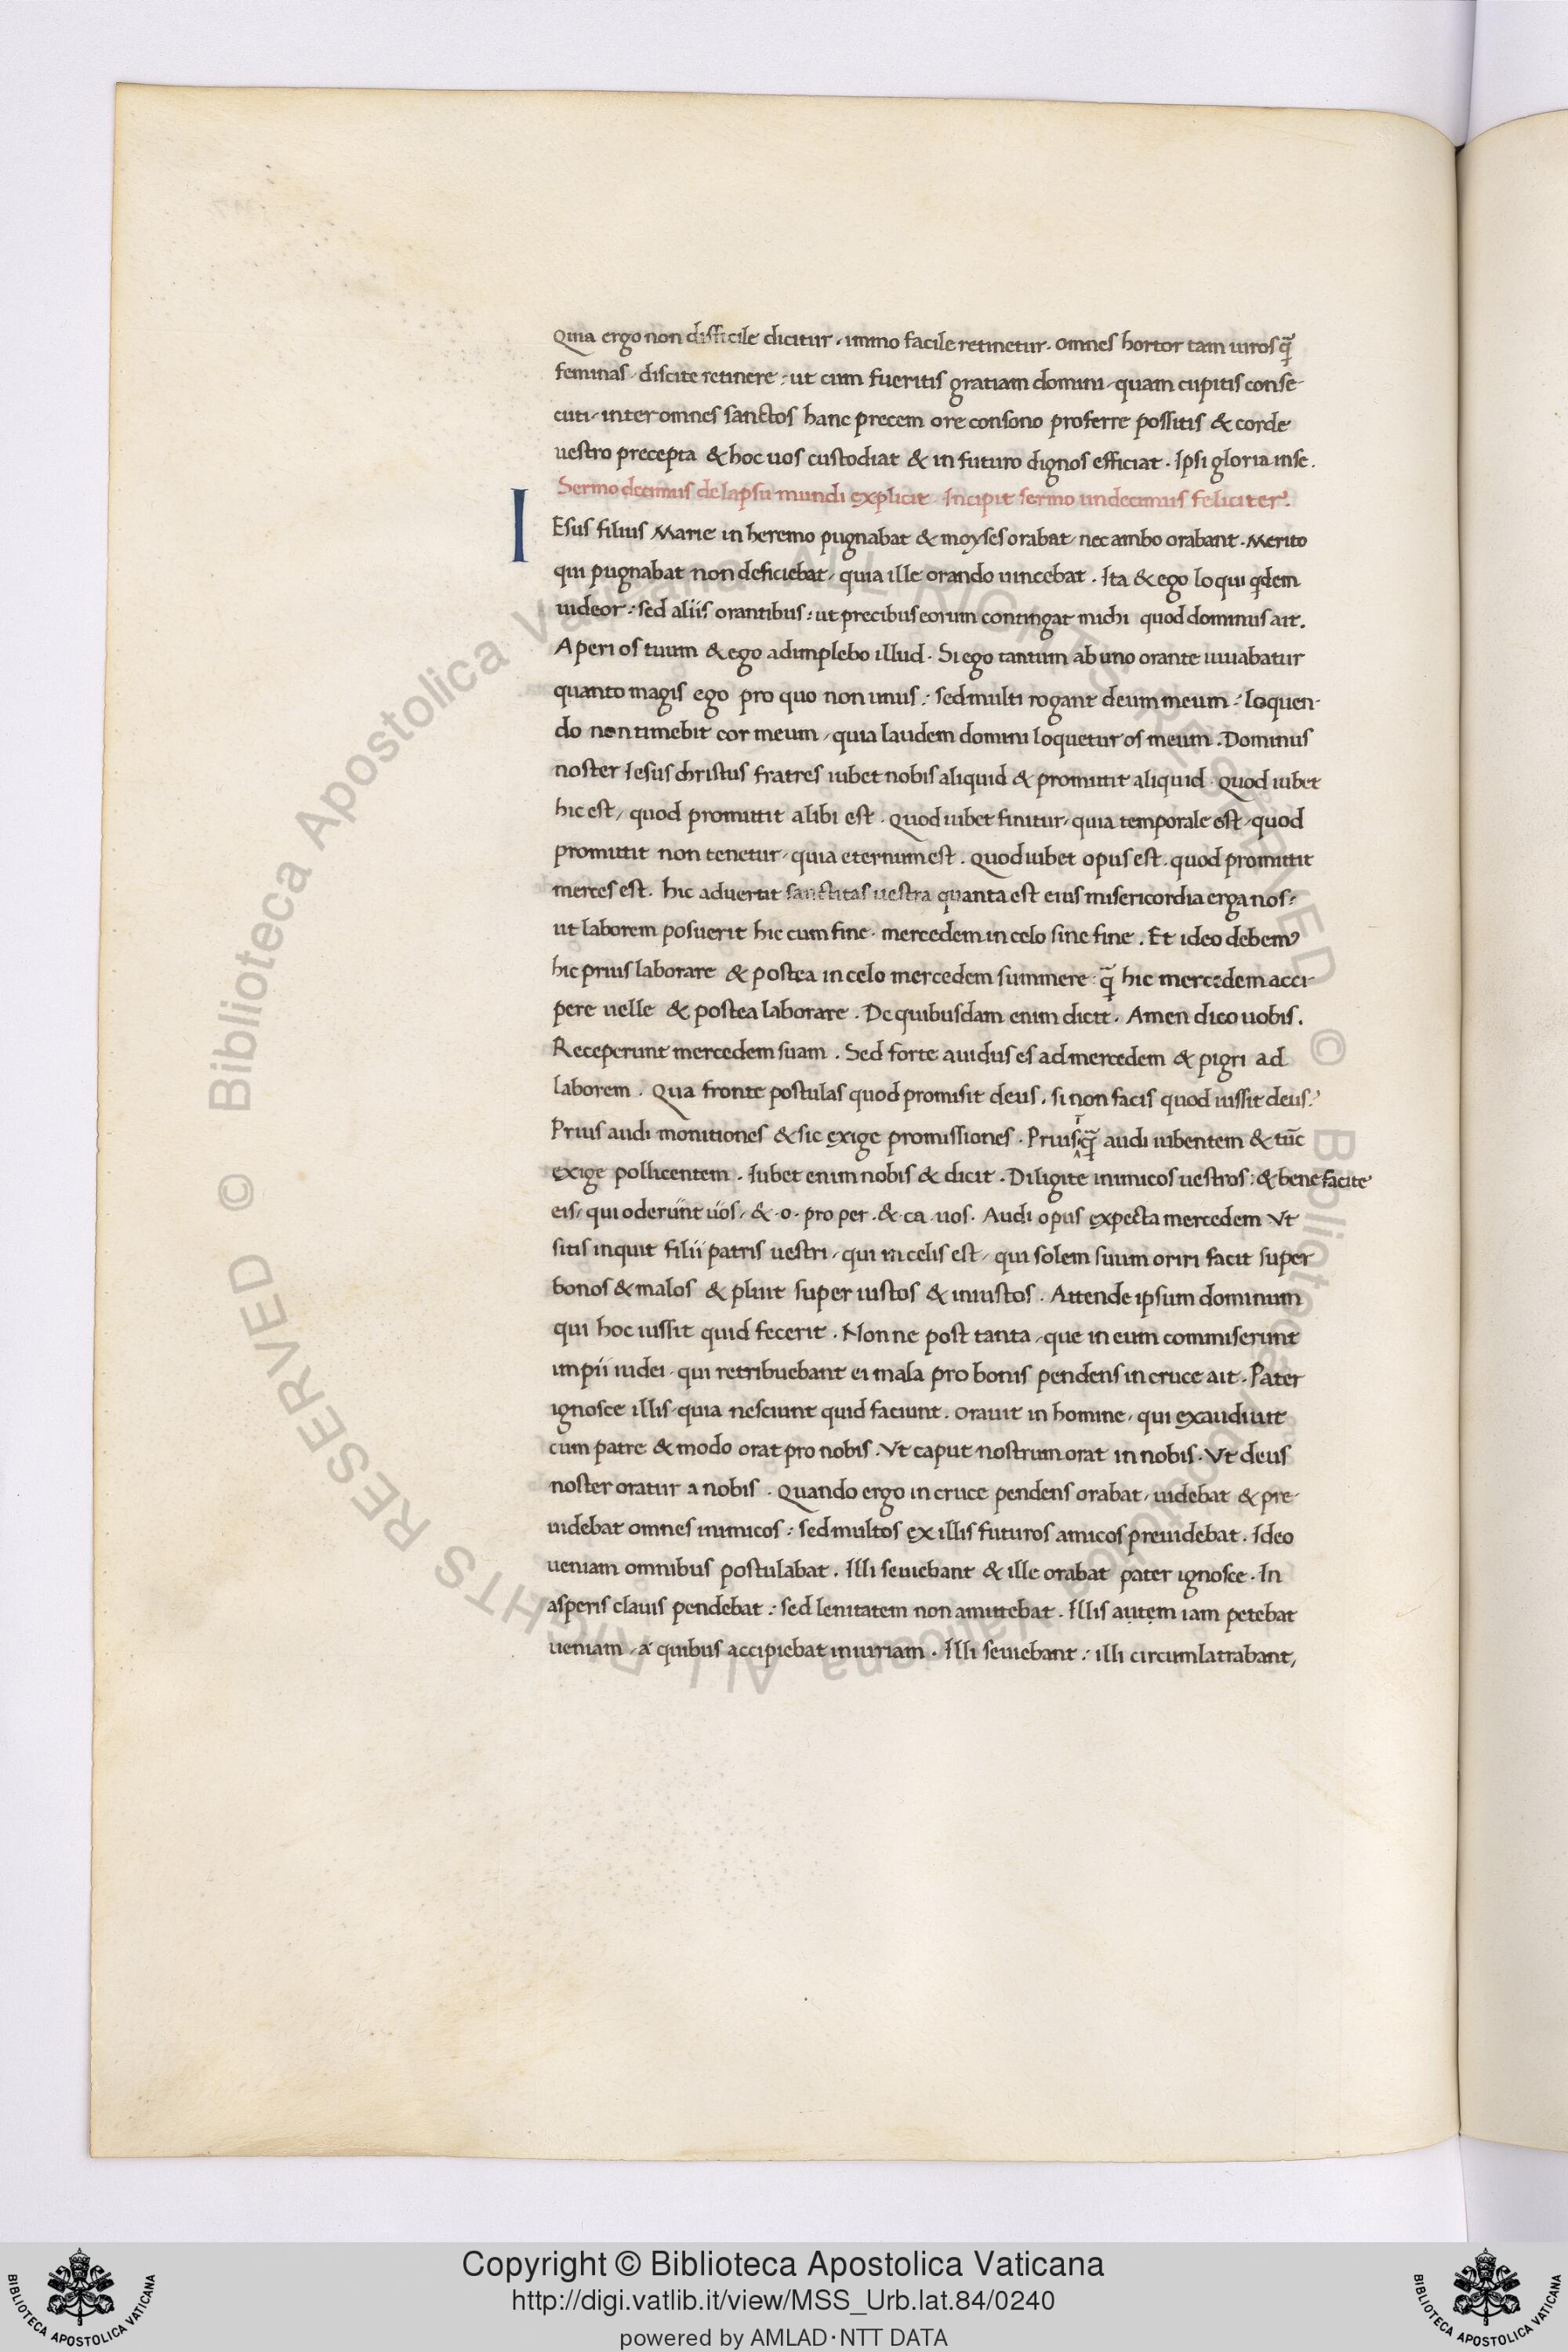 Quia ergo non difficile dicitur, immo facile retinetur. omnes hortor tam uiros q̃
feminas, discite retinere: ut cum fueritis gratiam domini, quam cupitis conse-
cuti, inter omnes sanctos hanc precem ore consono proferre possitis & corde
uestro precepta & hoc uos custodiat & in futuro dignos efficiat. Ipsi gloria in se.
Sermo decimus de lapsu mundi explicit. Incipit sermo undecimus feliciter.
IEsus filius Marie in heremo pugnabat & moyses orabat, nec ambo orabant. Merito
qui pugnabat non deficiebat, quia ille orando uincebat. Ita & ego loqui qdem
uideor: sed aliis orantibus: ut precibus eorum contingat michi quod dominus ait.
Aperi os tuum & ego adimplebo illud. Si ego tantum ab uno orante iuuabatur
quanto magis ego pro quo non unus: sed multi rogant deum meum: Loquen-
do non timebit cor meum, quia laudem domini loquetur os meum. Dominus
noster Iesus christus fratres iubet nobis aliquid & promittit aliquid. Quod iubet
hic est, quod promittit alibi est. Quod iubet finitur, quia temporale est, quod
promittit non tenetur, quia eternum est. Quod iubet opus est. quod promittit
merces est. hic aduertit sanctitas uestra quanta est eius misericordia erga nos:
ut laborem posuerit hic cum fine. mercedem in celo sine fine. Et ideo debem᾿
hic prius laborare & postea in celo mercedem summere: q̃ hic mercedem acci-
pere uelle & postea laborare. De quibusdam enim dicit. Amen dico uobis.
Receperunt mercedem suam. Sed forte auidus es ad mercedem & pigri ad
laborem. Qua fronte postulas quod promisit deus, si non facis quod iussit deus?
Prius audi monitiones & sic exige promissiones. Prius q̃ audi iubentem & tũc
exige pollicentem. Iubet enim nobis & dicit. Diligite inimicos uestros: & bene facite
eis, qui oderunt uos, & .o. pro per. & ca. uos. Audi opus expecta mercedem Vt
sitis inquit filii patris uestri, qui in celis est, qui solem suum oriri facit super
bonos & malos & pluit super iustos & iniustos. Attende ipsum dominum
qui hoc iussit quid fecerit. Nonne post tanta, que in eum commiserunt
impii iudei, qui retribuebant ei mala pro bonis pendens in cruce ait. Pater
ignosce illis, quia nesciunt quid faciunt. Orauit in homine, qui exaudiuit
cum patre & modo orat pro nobis. Vt caput nostrum orat in nobis. Vt deus
noster oratur a nobis. Quando ergo in cruce pendens orabat, uidebat & pre-
uidebat omnes inimicos: sed multos ex illis futuros amicos preuidebat. Ideo
ueniam omnibus postulabat. Illi seuiebant & ille orabat pater ignosce. In
asperis clauis pendebat: sed lenitatem non amittebat. Illis autem iam petebat
ueniam, a quibus accipiebat iniuriam. Illi seuiebant: illi circumlatrabant,
© Biblioteca Apostolica Vaticana ALL RIGHTS RESERVED © Biblioteca Apostolica Vaticana ALL RIGHTS RESERVED
Copyright © Biblioteca Apostolica Vaticana
http://digi.vatlib.it/view/MSS_Urb.lat.84/0240
powered by AMLAD·NTT DATA
BIBLIOTECA APOSTOLICA VATICANA
BIBLIOTECA APOSTOLICA VATICANA